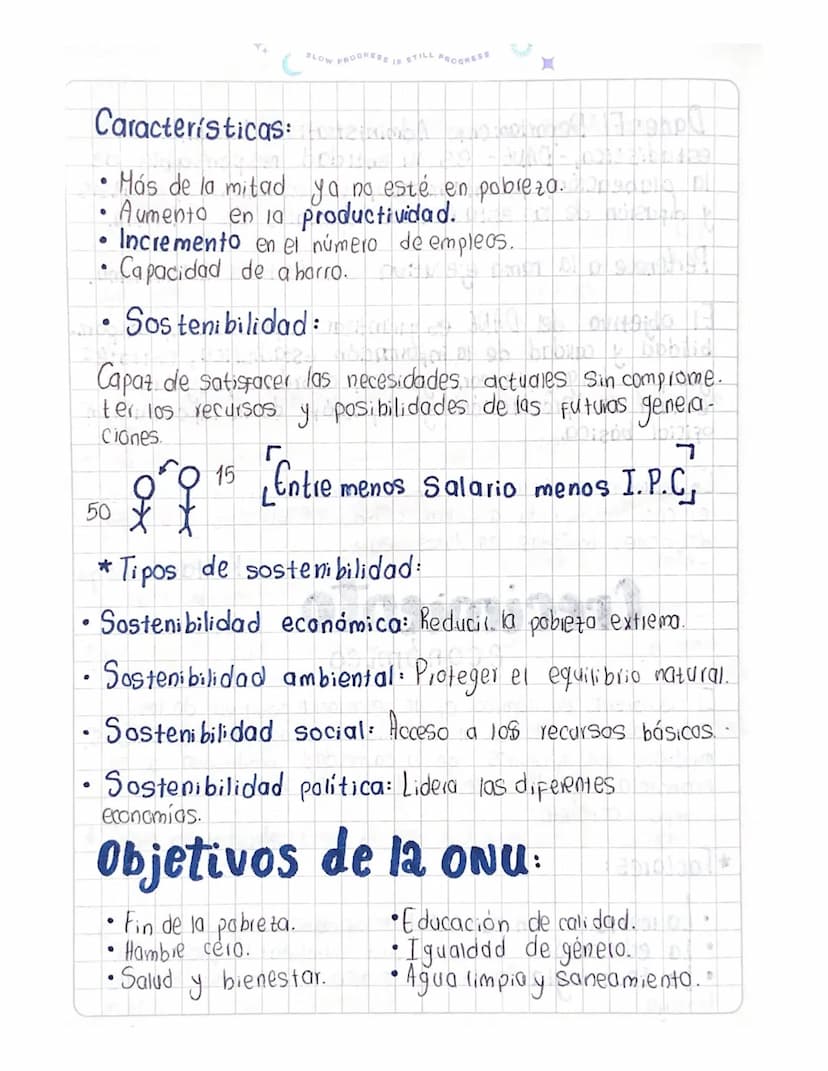 SLOW PROGRESS IS STILL PROGRESS
Características:
• Más de la mitad ya no esté en pobreza.
• Aumento en la productividad.
• Incremento en el número de empleos.
• Capacidad de ahorro.
• Sostenibilidad:
Capaz de satisfacer las necesidades actuales sin comprome-
ter los recursos y posibilidades de las futuras genera-
ciones.
50 15 Entre menos salario menos I.P.C
* Tipos de sostenibilidad:
• Sostenibilidad económica: Reducir la pobreza extrema.
• Sostenibilidad ambiental: Proteger el equilibrio natural.
• Sostenibilidad social: Acceso a los recursos básicos.
• Sostenibilidad política: Lidera las diferentes
economías.
Objetivos de la ONU:
• Fin de la pobreza.
• Hambre cero.
• Salud y bienestar.
• Educación de calidad.
• Igualdad de género.
• Agua limpia y saneamiento.